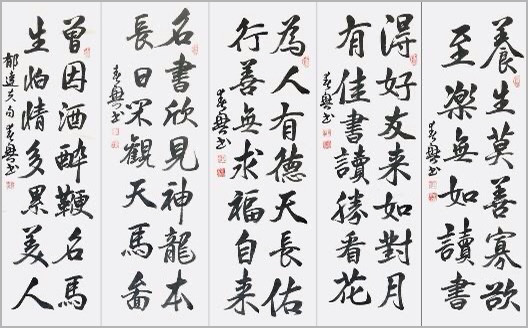 養生莫善寡欲
至楽無如讀書
得好友来如對月
有佳書讀勝看花
為人有德天長佑
行善無求福自来
名書欣見神龍本
長日闲觀天馬畵
曾因酒醉鞭名馬
生怕情多累美人
郁達夫句